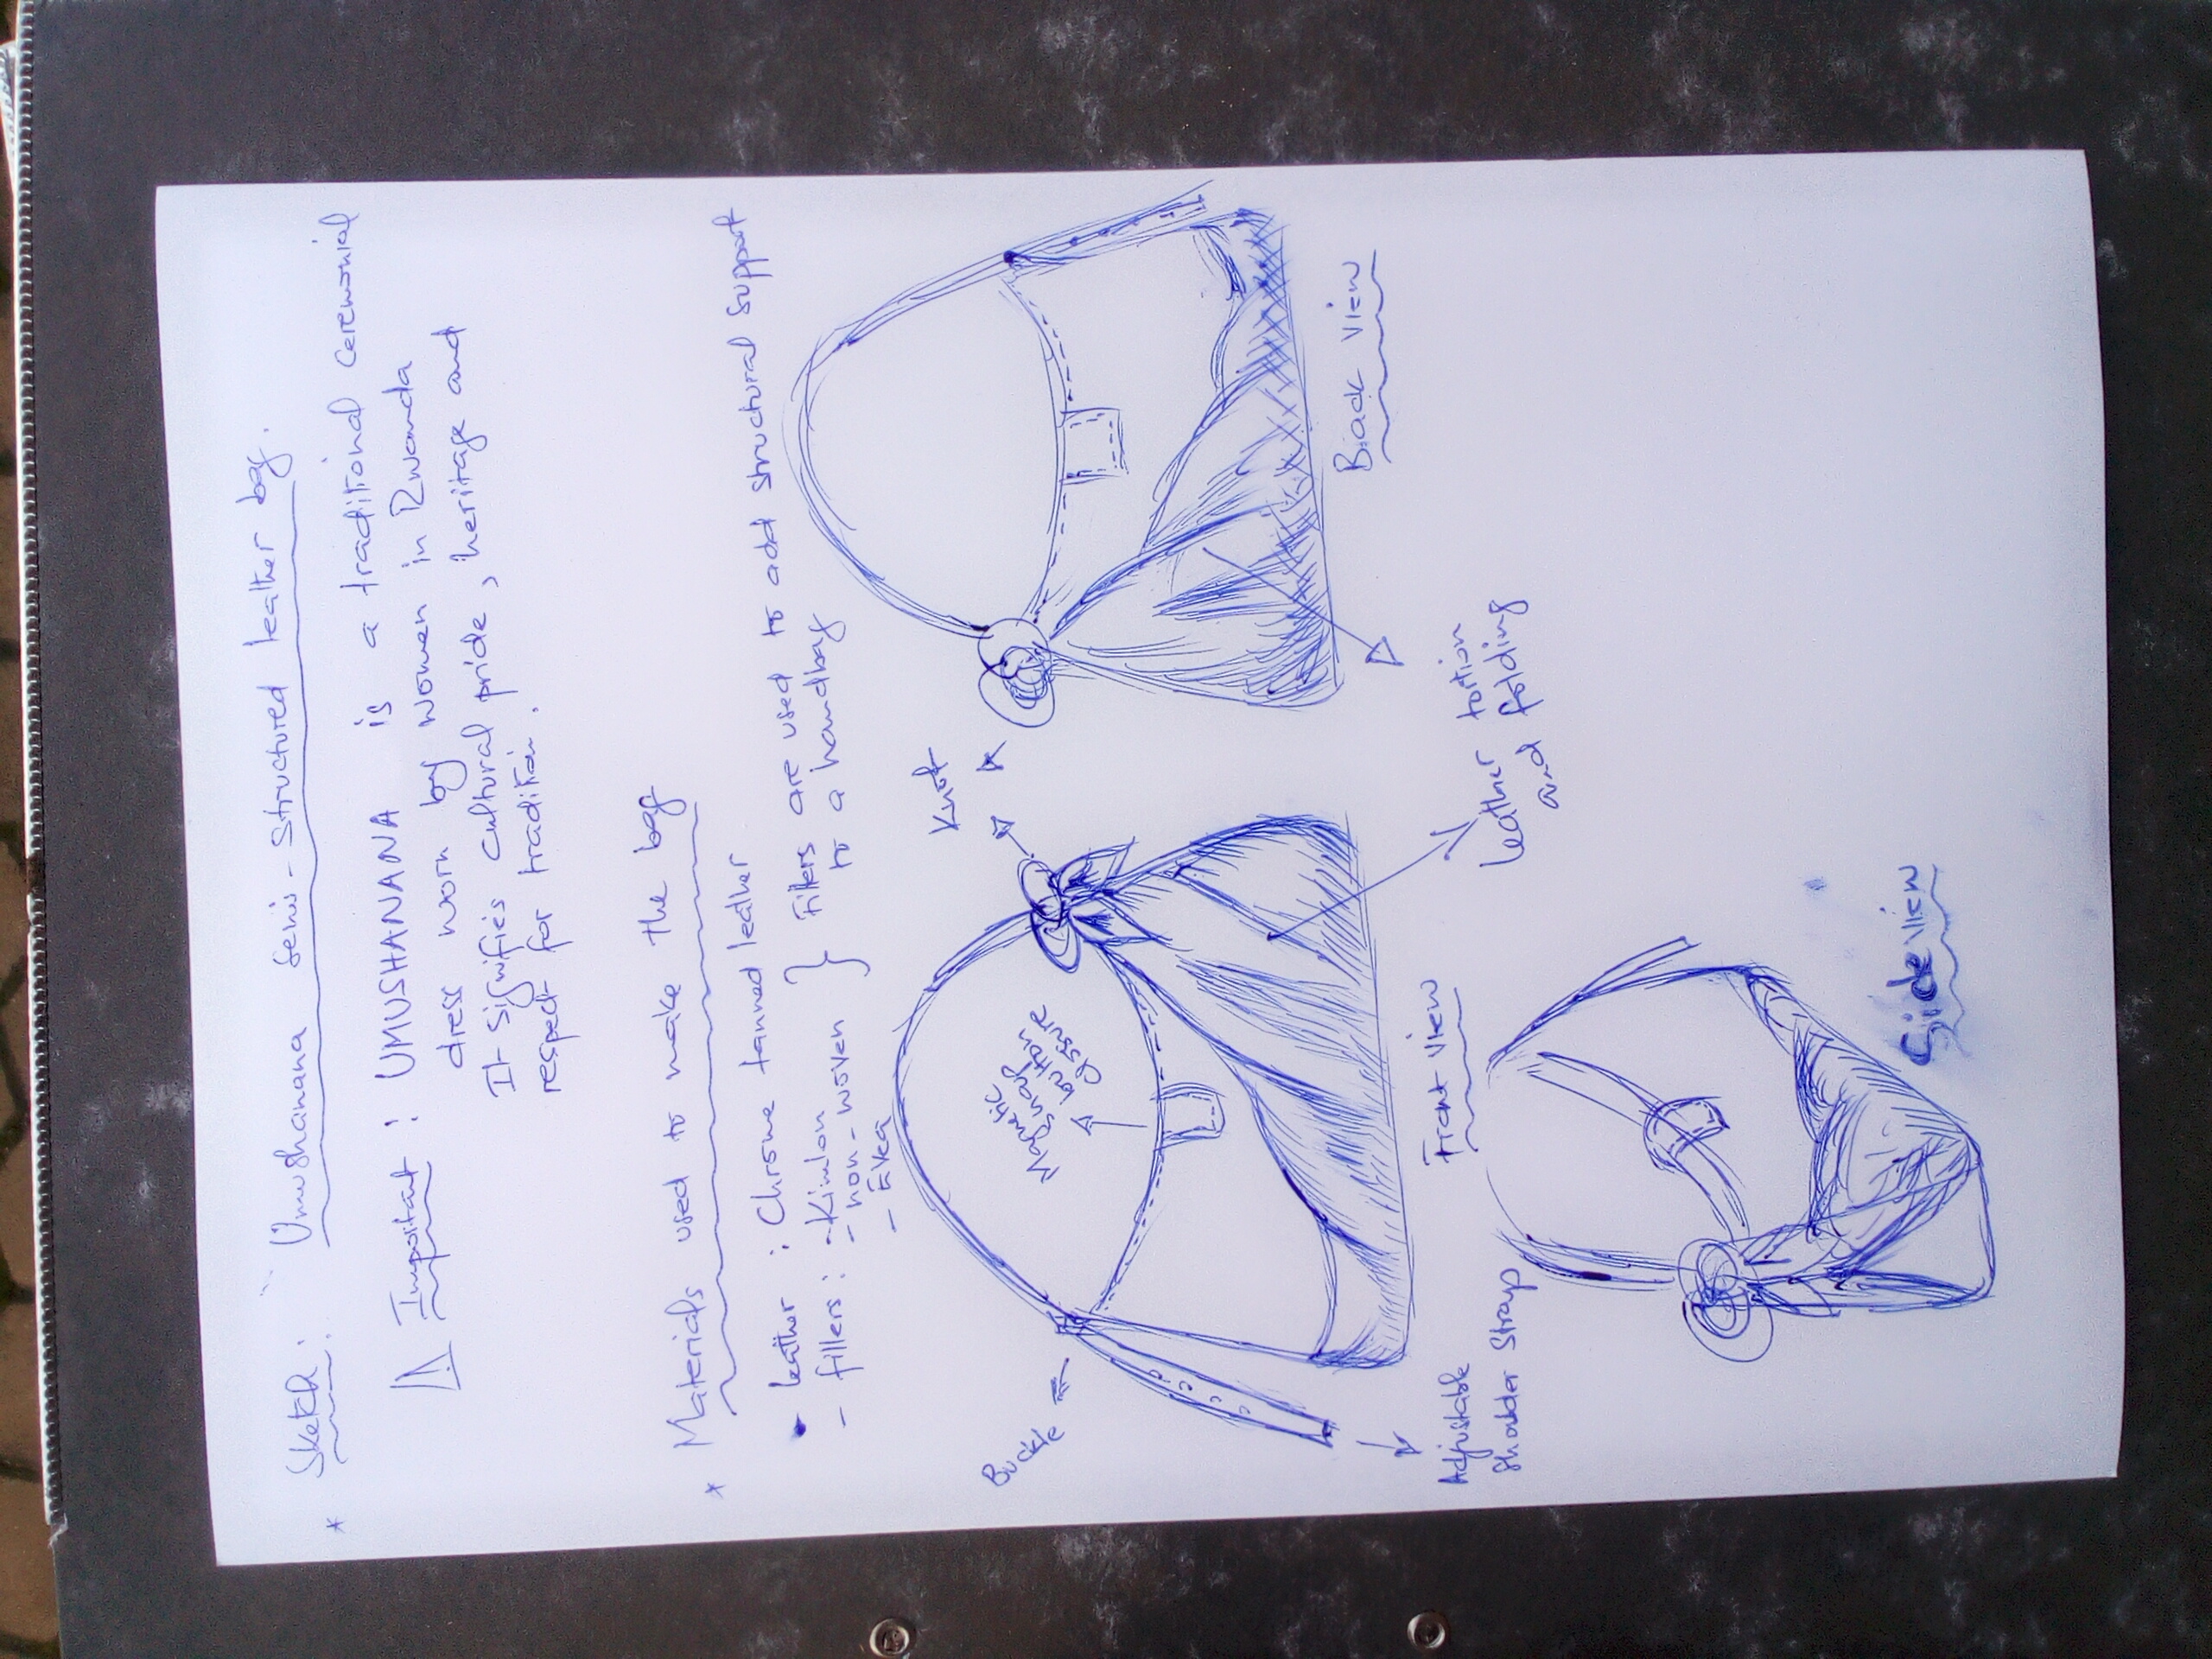 * Sketch: Umushanana semi-structured leather bag.
⚠ Important: UMUSHANANA is a traditional ceremonial
dress worn by women in Rwanda
It signifies cultural pride, heritage and
respect for tradition.
* Materials used to make the bag
• leather : Chrome tanned leather
- fillers : - Kimlon
- non-woven
- Evea
} Fillers are used to add structural support
to a handbag
Knot
Magnetic
snap
button
closure
Buckle
Adjustable
Shoulder Strap
Front View
Back View
leather tortion
and folding
Side View